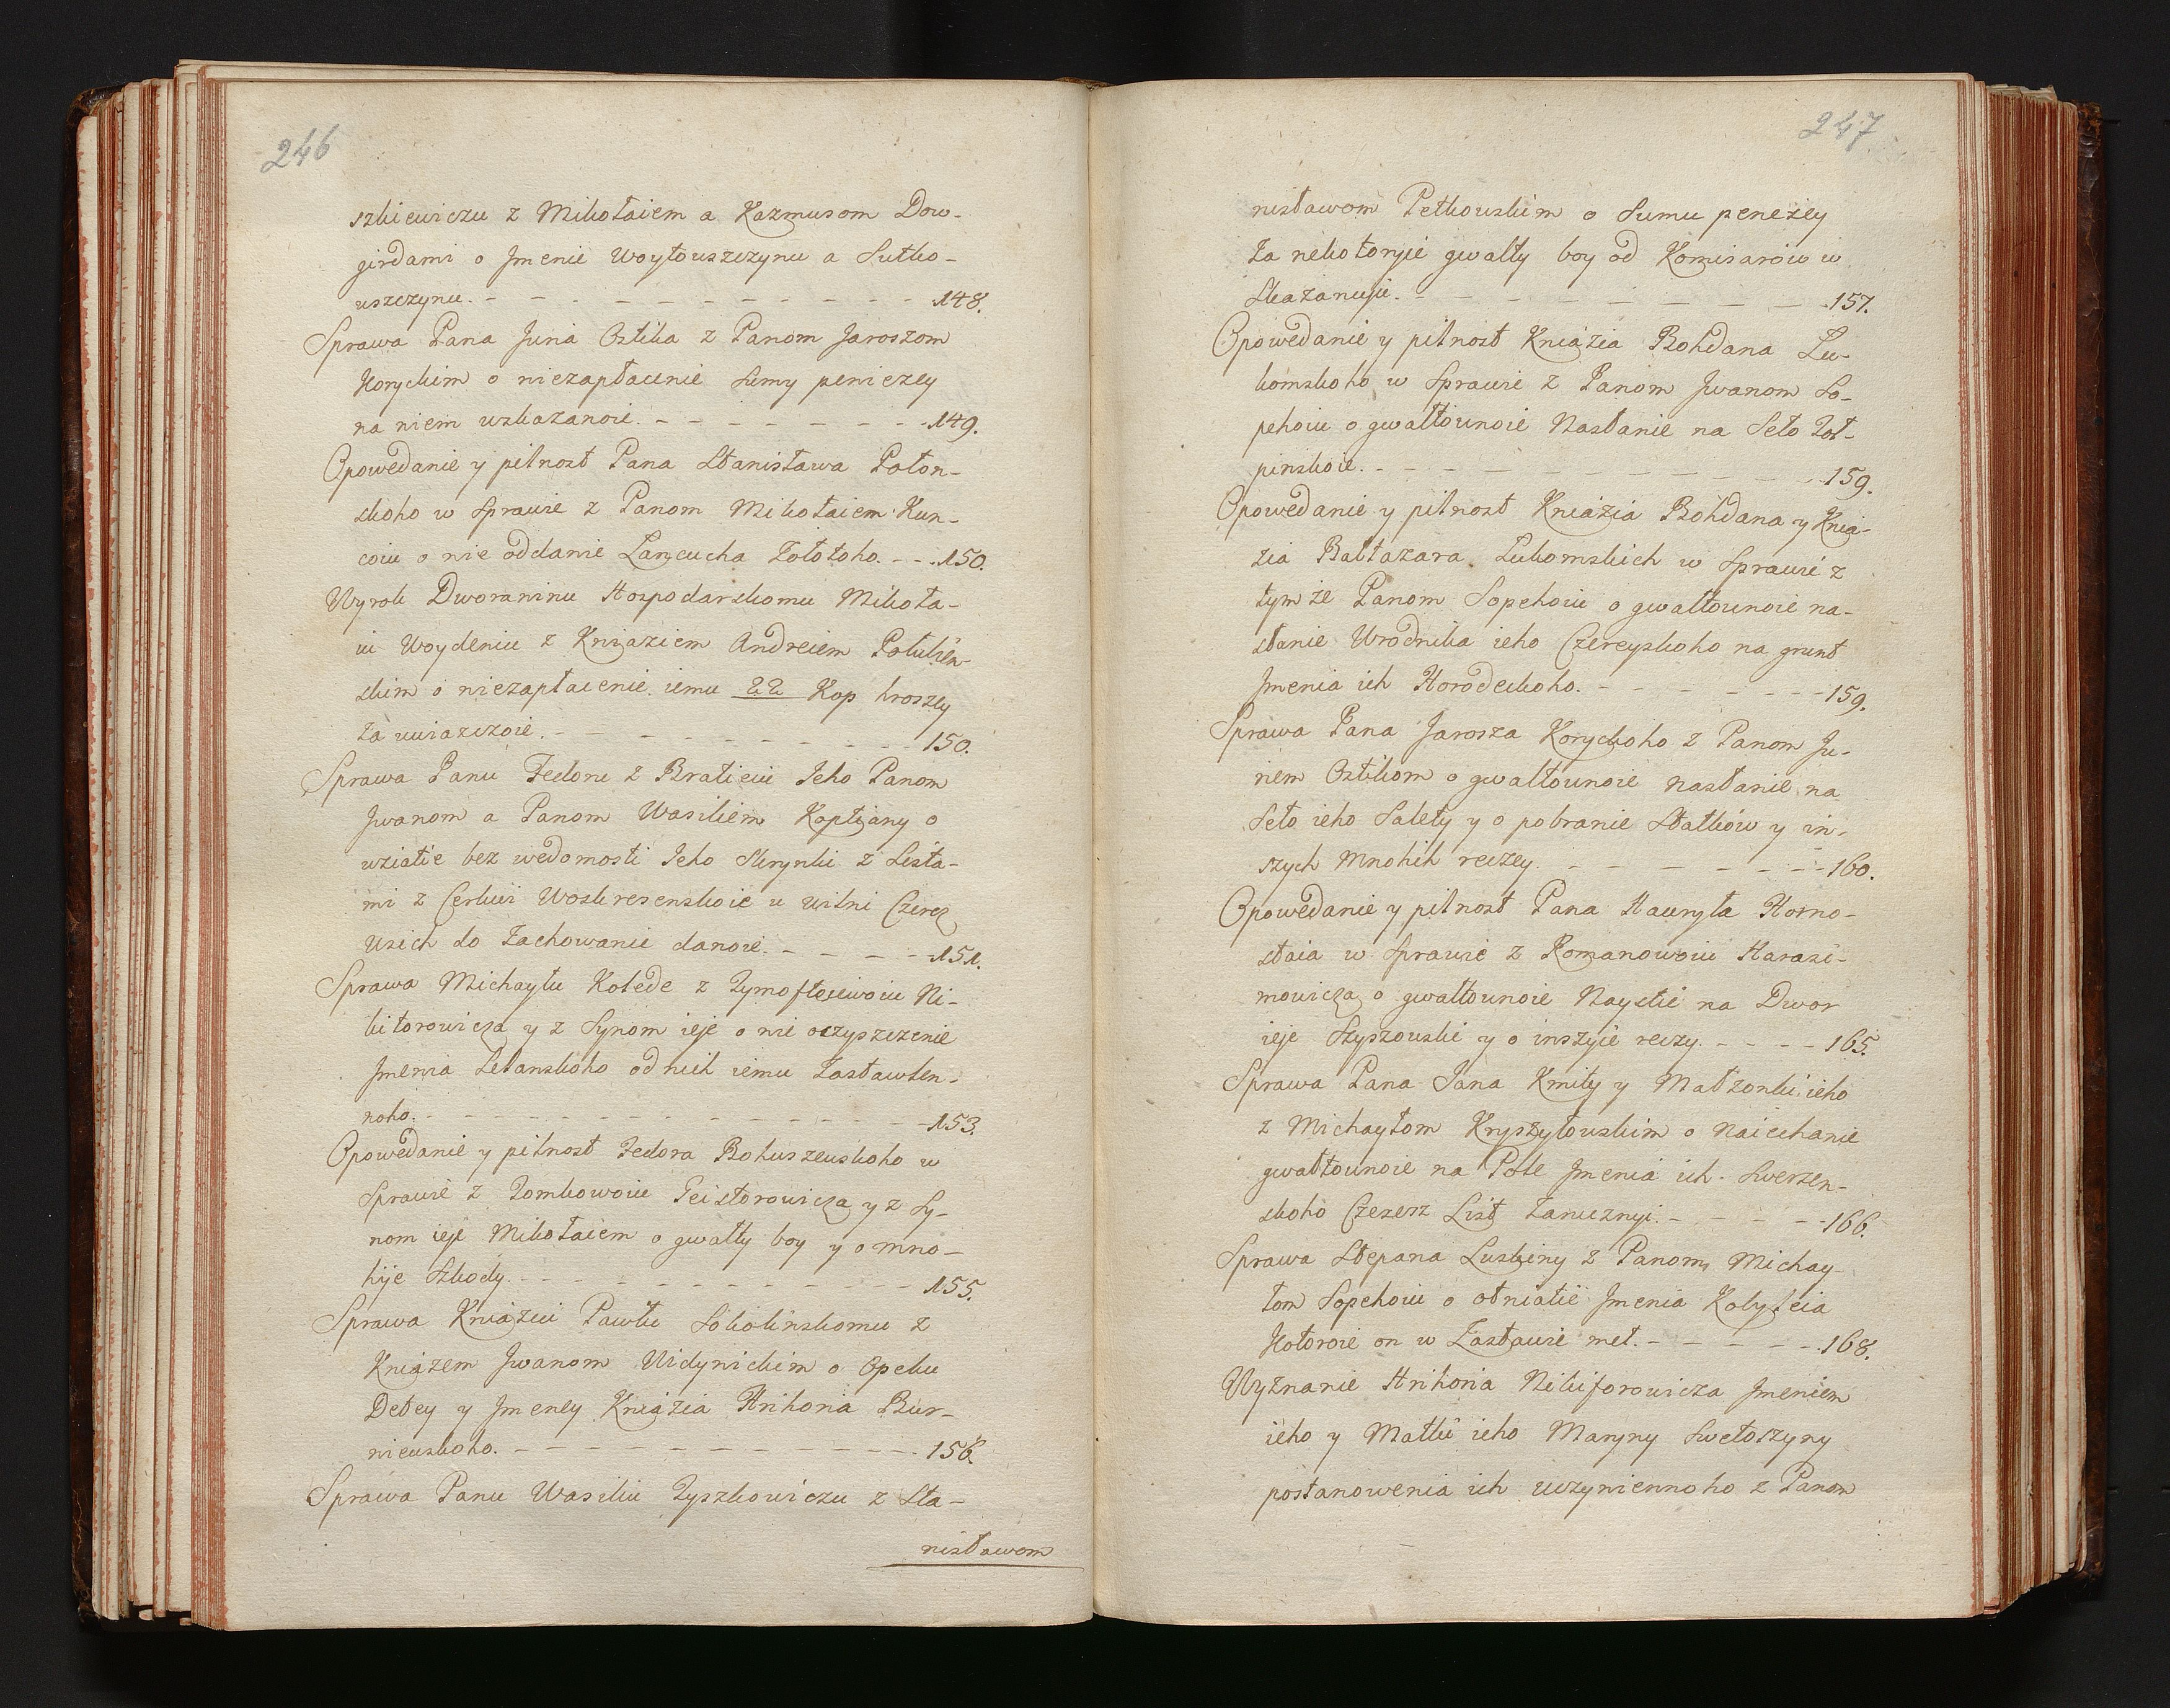 246
szkiewiczu z Mikołaiem a Kazmusom Dow-
girdami o Jmenie Woytouszczynu a Sutko-
uszczynu. - - - - - - - - - - - - 148.
Sprawa Pana Juria Ostika z Panom Jaroszom
Koryckim o niezapłacenie Sumy peniezey
na niem wskazanoie. - - - - - - - - 149.
Opowedanie y pilnost Pana Stanisława Poton-
skoho w Sprawie z Panom Mikołaiem Kun-
coiu o nie oddanie Łancucha Zołotoho. - - - 150.
Wyrok Dworaninu Hospodarskomu Mikoła-
iu Woydeniu z Kniaziem Andreiem Połuben-
skim o niezapłacenie iemu 22 Kop hroszey
za uwiazczoie. - - - - - - - - - - 150.
Sprawa Panu Fedoru z Bratieiu Jeho Panom
Jwanom a Panom Wasiliem Koptiany o
wziatie bez wedomosti Jeho Skrynki z Lista-
mi z Cerkwi Woskresenskoie u Wilni Czerez
Usich do Zachowanie danoie. - - - - - 151.
Sprawa Michayłu Kołede z Tymofteiewoiu Ni-
kitorowicza y z Synom ieje o nie oczyszczenie
Jmenia Letanskoho od nich iemu Zastawlen-
noho. - - - - - - - - - - - - - - 153.
Opowedanie y pilnost Fedora Bohuszewskoho w
Sprawie z Tomkowoiu Peistorowicza y z Sy-
nom ieje Mikołaiem o gwałty boy y o mno-
hije Szkody. - - - - - - - - - - - 155.
Sprawa Kniaziu Pawłu Sokolinskomu z
Kniazem Jwanom Widynickim o Opeku
Detey y Jmeney Kniazia Hrihoria Bur-
niewskoho. - - - - - - - - - - - - 156.
Sprawa Panu Wasiliu Tyszkowiczu z Sta-
nisławom
247
nisławom Petkouskim o Sumu penezey
za nekotoryie gwałty boy od Komisarów w
Skazanuju. - - - - - - - - - 157.
Opowedanie y pilnost Kniazia Bohdana Lu-
komskoho w Sprawie z Panom Jwanom So-
pehoiu o gwałtounoie Nasłanie na Seło Tot-
pinskoie. - - - - - - - - - - - 159.
Opowedanie y pilnost Kniazia Bohdana y Knia-
zia Baltazara Lukomskich w Sprawie z
tym że Panom Sopehoiu o gwałtounoie na-
słanie Wrodnika ieho Czereyskoho na grunt
Jmenia ich Horodeckoho. - - - - - - - 159.
Sprawa Pana Jarosza Koryckoho z Panom Ju-
riem Ostikom o gwałtounoie nasłanie na
Seło ieho Salety y o pobranie Statków y in-
szych Mnohih reczey. - - - - - - - - 160.
Opowedanie y pilnost Pana Hawryła Horno-
staia w Sprawie z Romanowoiu Harasi-
mowicza o gwałtounoie Naystie na Dwor
ieje Szyszouski y o inszyie reczy. - - - - 165.
Sprawa Pana Jana Kmity y Małzonki ieho
z Michayłom Kryszyłouskim o Naiechanie
gwałtounoie na Pole Jmenia ich Swerzen-
skoho Czerez List Zaruznyi. - - - - - 166.
Sprawa Stepana Luskiny z Panom Michay-
łom Sopehoiu o otniatie Jmenia Kobyłcia
Kotoroie on w Zastawie meł. - - - - - - 168.
Wyznanie Hrihoria Nikiforowicza Jmeniem
ieho y Matki ieho Maryny Swetoszyny
postanowenia ich uczyniennoho z Panom